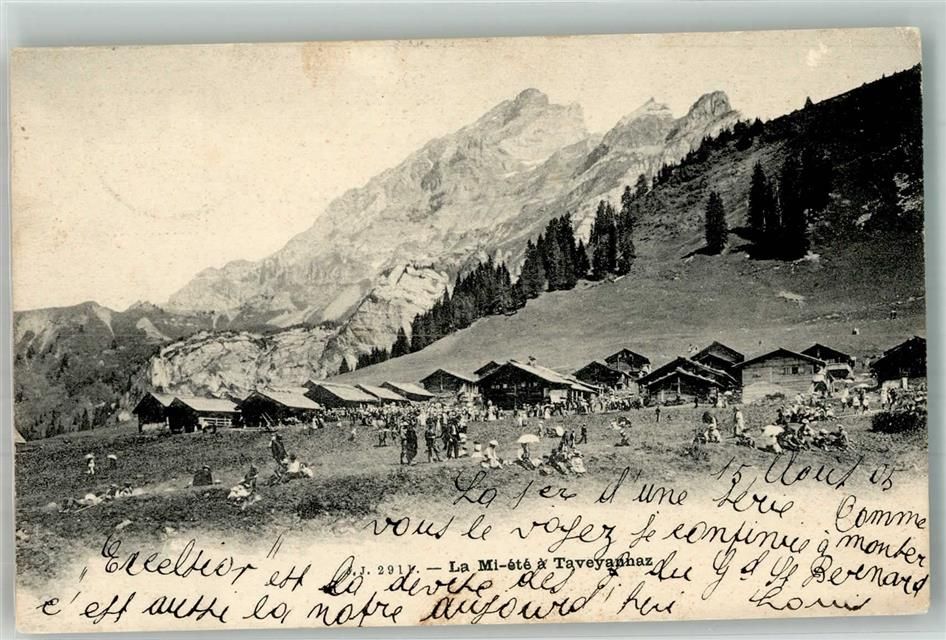 15 Août 05
La 1er d'une Série
Comme
vous le voyez je continue à monter
"Excelsior" est la devise des du Gd St Bernard
J.J. 2911. — La Mi-été à Taveyannaz
c'est aussi la notre aujourd'hui Louis